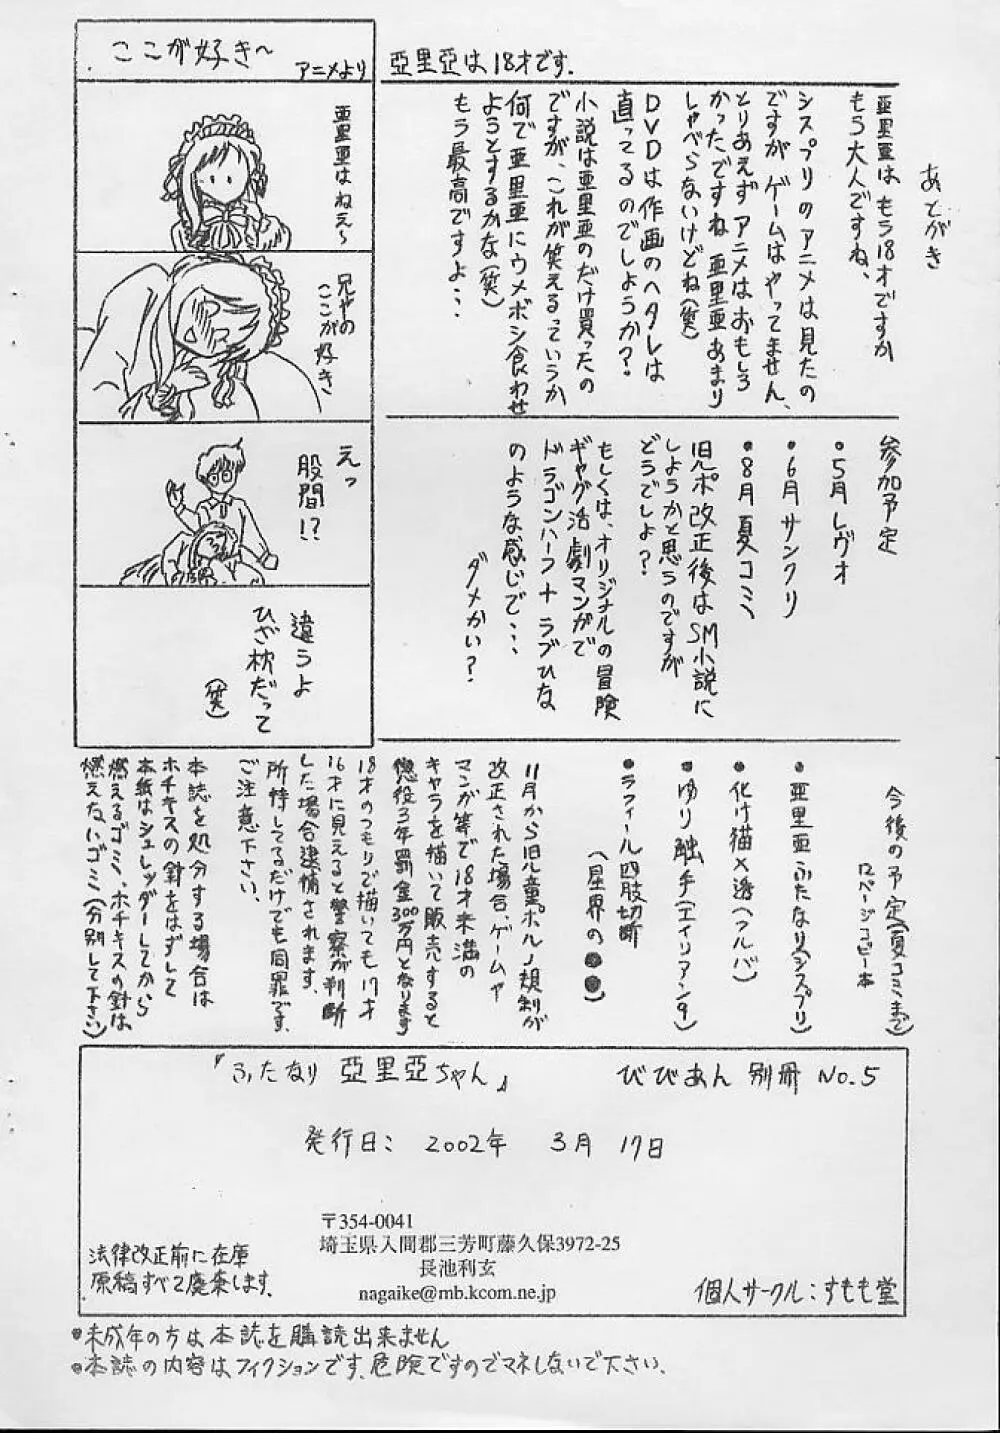 ここが好き～
アニメより
亜里亜はねえ～
兄やの
ここが好き
えっ
股間!?
違うよ
ひざ枕だって
(笑)
亞里亞は18才です.
あとがき
亜里亜はもう18才ですか
もう大人ですね、
シスプリのアニメは見たの
ですがゲームはやってません、
とりあえずアニメはおもしろ
かったですね 亜里亜あまり
しゃべらないけどね(笑)
DVDは作画のヘタレは
直ってるのでしょうか?
小説は亜里亜のだけ買ったの
ですが、これが笑えるっていうか
何で亜里亜にウメボシ食わせ
ようとするかな(笑)
もう最高ですよ・・・
参加予定
•5月レヴォ
•6月サンクリ
•8月夏コミ
旧ポ改正後はSM小説に
しようかと思うのですが
どうでしょ?
もしくは、オリジナルの冒険
ギャグ活劇マンガで
ドラゴンハーフ+ラブひな
のような感じで・・・
ダメかい?
今後の予定(夏コミまで)
12ページコピー本
•亜里亜ふたなり(シスプリ)
•化け猫×透(フルバ)
•ゆり触手(エイリアン9)
•ラフィール四肢切断
(星界の●●)
11月から旧児童ポルノ規制が
改正された場合、ゲームや
マンガ等で18才未満の
キャラを描いて販売すると
懲役3年罰金300万円となります
18才のつもりで描いても17才
16才に見えると警察が判断
した場合逮捕されます.
所持してるだけでも同罪です.
ご注意下さい.
本誌を処分する場合は
ホチキスの針をはずして
本紙はシュレッダーしてから
燃えるゴミ、ホチキスの針は
燃えないゴミ(分別して下さい)
『ふたなり 亞里亞ちゃん』
びびあん 別冊 No.5
発行日: 2002年 3月 17日
〒354-0041
埼玉県入間郡三芳町藤久保3972-25
長池利玄
nagaike@mb.kcom.ne.jp
法律改正前に在庫
原稿すべて廃棄します.
個人サークル:すもも堂
•未成年の方は本誌を購読出来ません
•本誌の内容はフィクションです.危険ですのでマネしないで下さい.